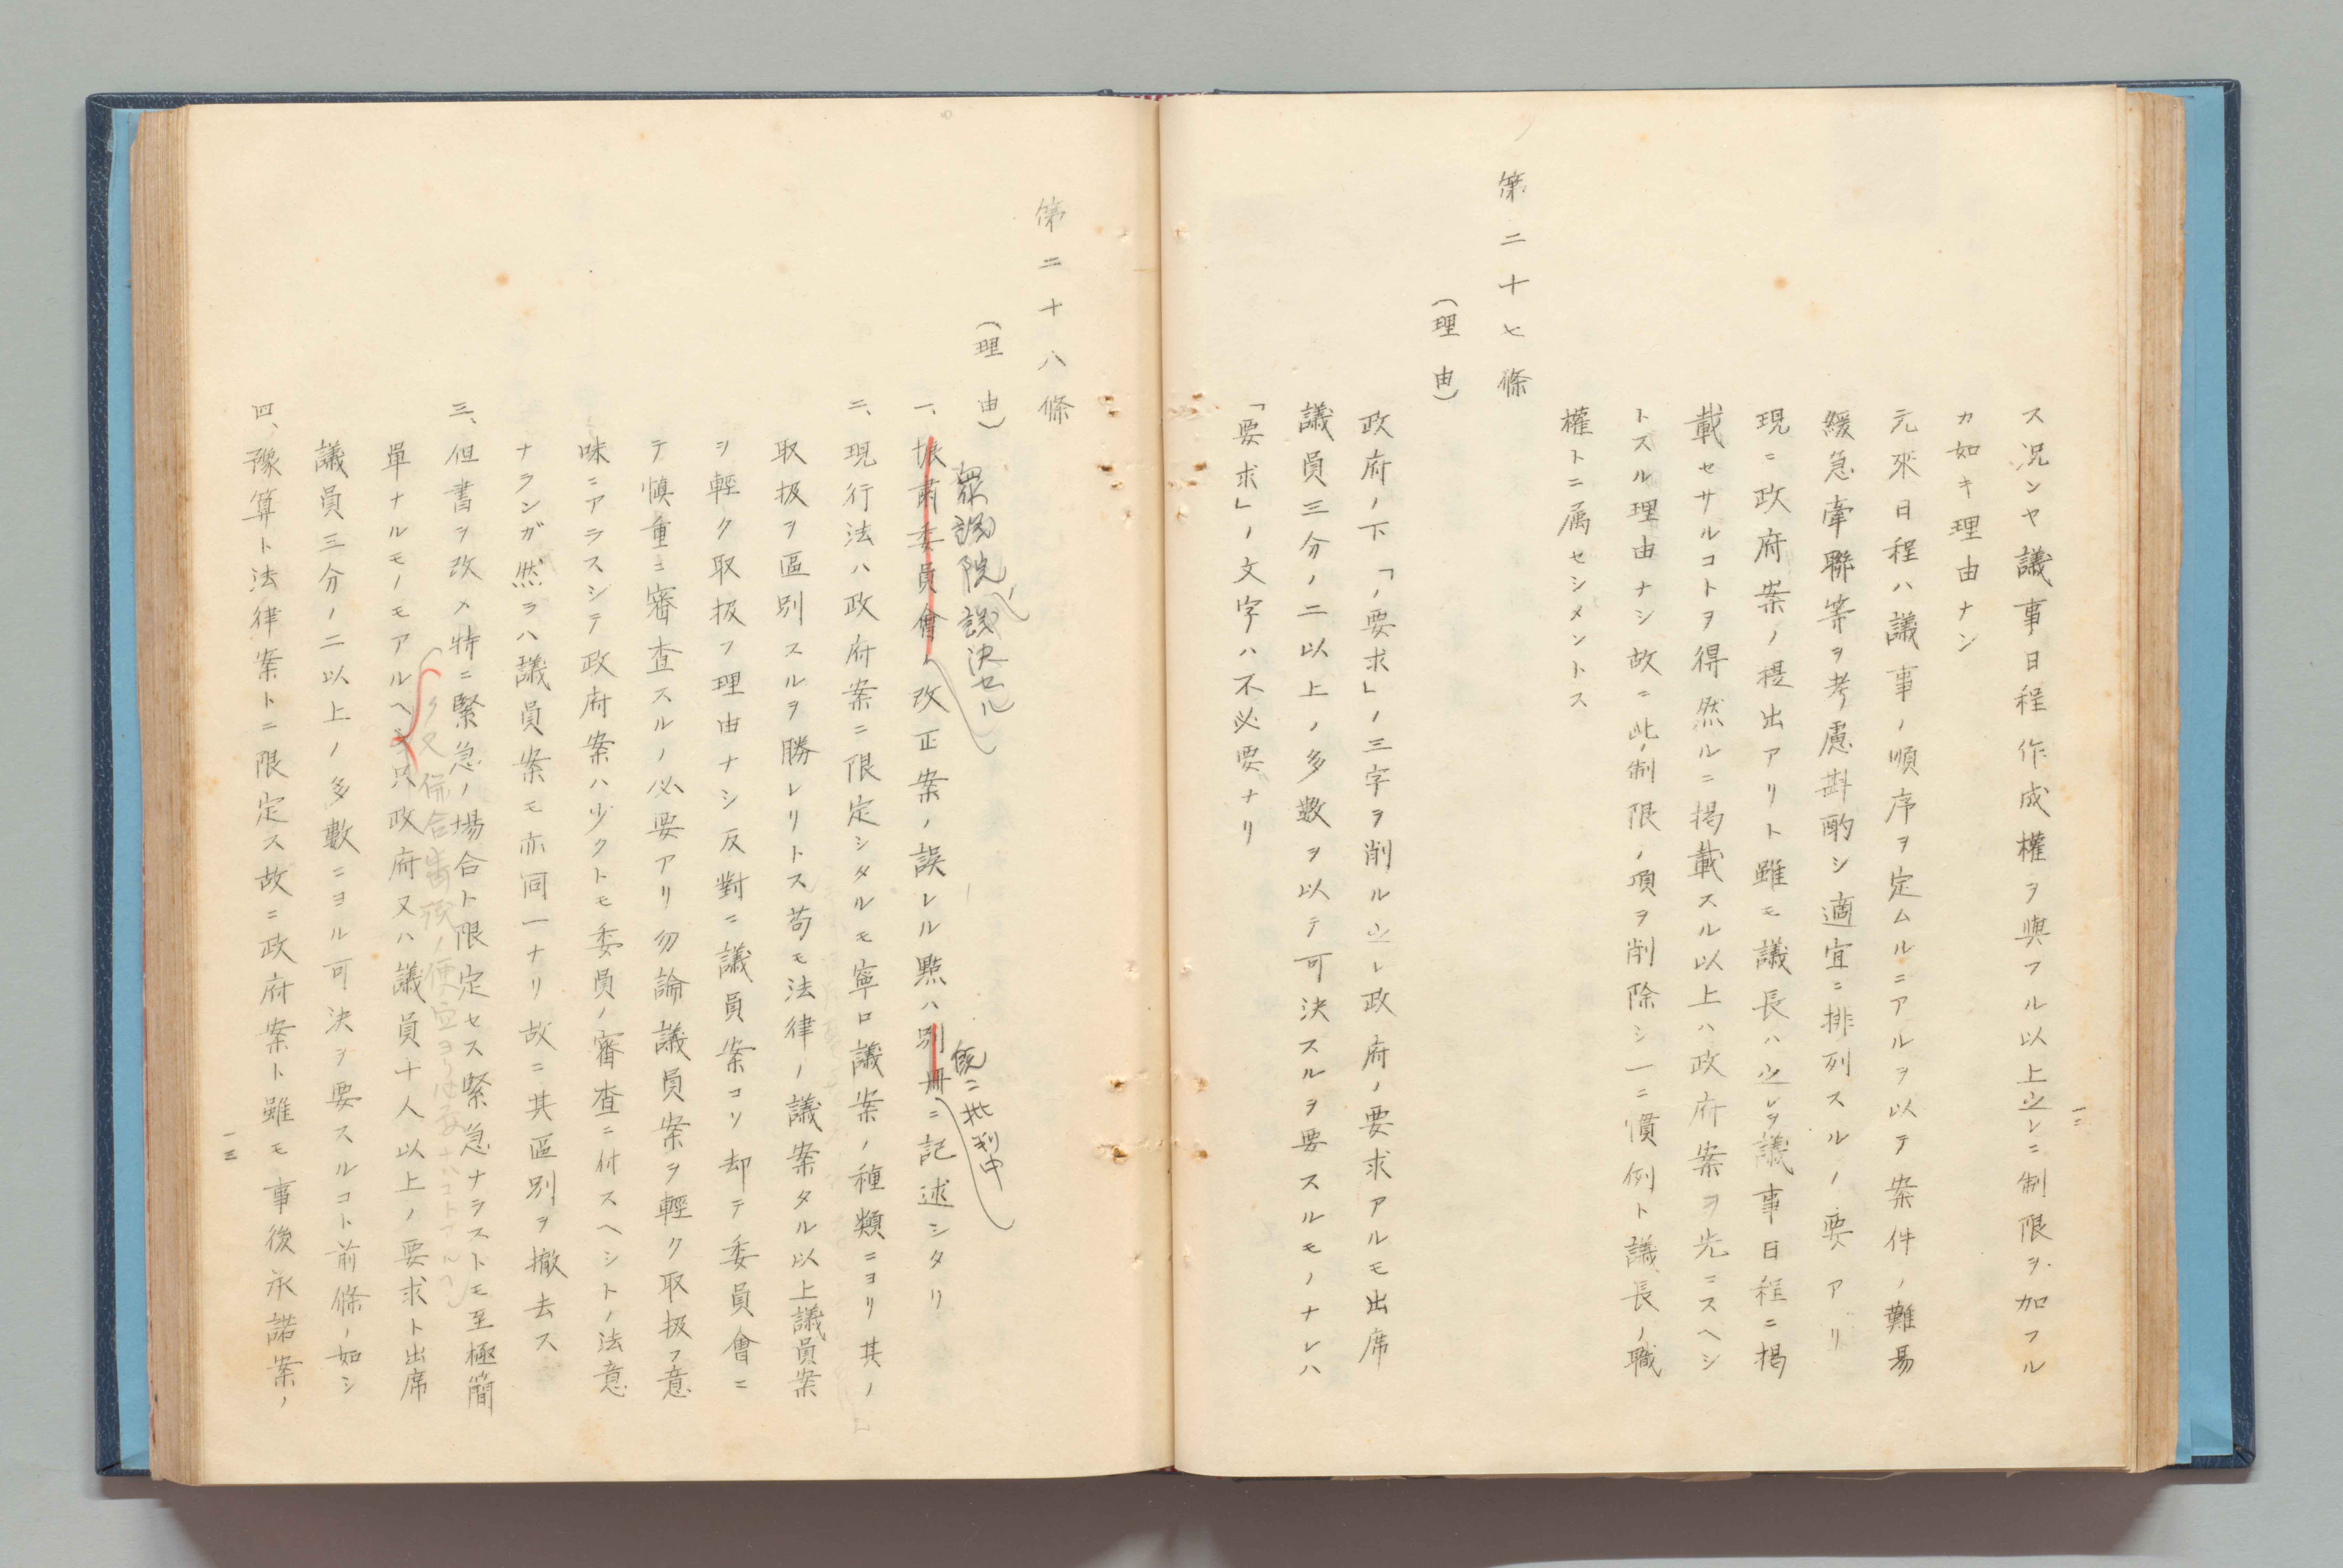 一二
ス況ンヤ議事日程作成權ヲ與フル以上之レニ制限ヲ加フル
カ如キ理由ナシ
元來日程ハ議事ノ順序ヲ定ムルニアルヲ以テ案件ノ難易
緩急牽聯等ヲ考慮斟酌シ適宜ニ排列スルノ要アリ
現ニ政府案ノ提出アリト雖モ議長ハ之レヲ議事日程ニ掲
載セサルコトヲ得然ルニ掲載スル以上ハ政府案ヲ先ニスヘシ
トスル理由ナシ故ニ此ノ制限ノ項ヲ削除シ一ニ慣例ト議長ノ職
權トニ属セシメントス
第二十七條
(理由)
政府ノ下「ノ要求」ノ三字ヲ削ル之レ政府ノ要求アルモ出席
議員三分ノ二以上ノ多数ヲ以テ可決スルヲ要スルモノナレハ
「要求」ノ文字ハ不必要ナリ
第二十八條
(理由)
衆議院ノ議決セル
既ニ批判中
一、振肅委員會ノ改正案ノ誤レル點ハ別冊ニ記述シタリ
二、現行法ハ政府案ニ限定シタルモ寧ロ議案ノ種類ニヨリ其ノ
取扱ヲ區別スルヲ勝レリトス苟モ法律ノ議案タル以上議員案
ヲ輕ク取扱フ理由ナシ反對ニ議員案コソ却テ委員會ニ
テ愼重ニ審査スルノ必要アリ勿論議員案ヲ輕ク取扱フ意
味ニアラスシテ政府案ハ少クトモ委員ノ審査ニ付スヘシトノ法意
ナランガ然ラハ議員案モ亦同一ナリ故ニ其區別ヲ撤去ス
三、但書ヲ改メ特ニ緊急ノ場合ト限定セス緊急ナラストモ至極簡
單ナルモノモアルヘク只政府又ハ議員十人以上ノ要求ト出席
議員三分ノ二以上ノ多數ニヨル可決ヲ要スルコト前條ノ如シ
四、豫算ト法律案トニ限定ス故ニ政府案ト雖モ事後承諾案ノ
一三